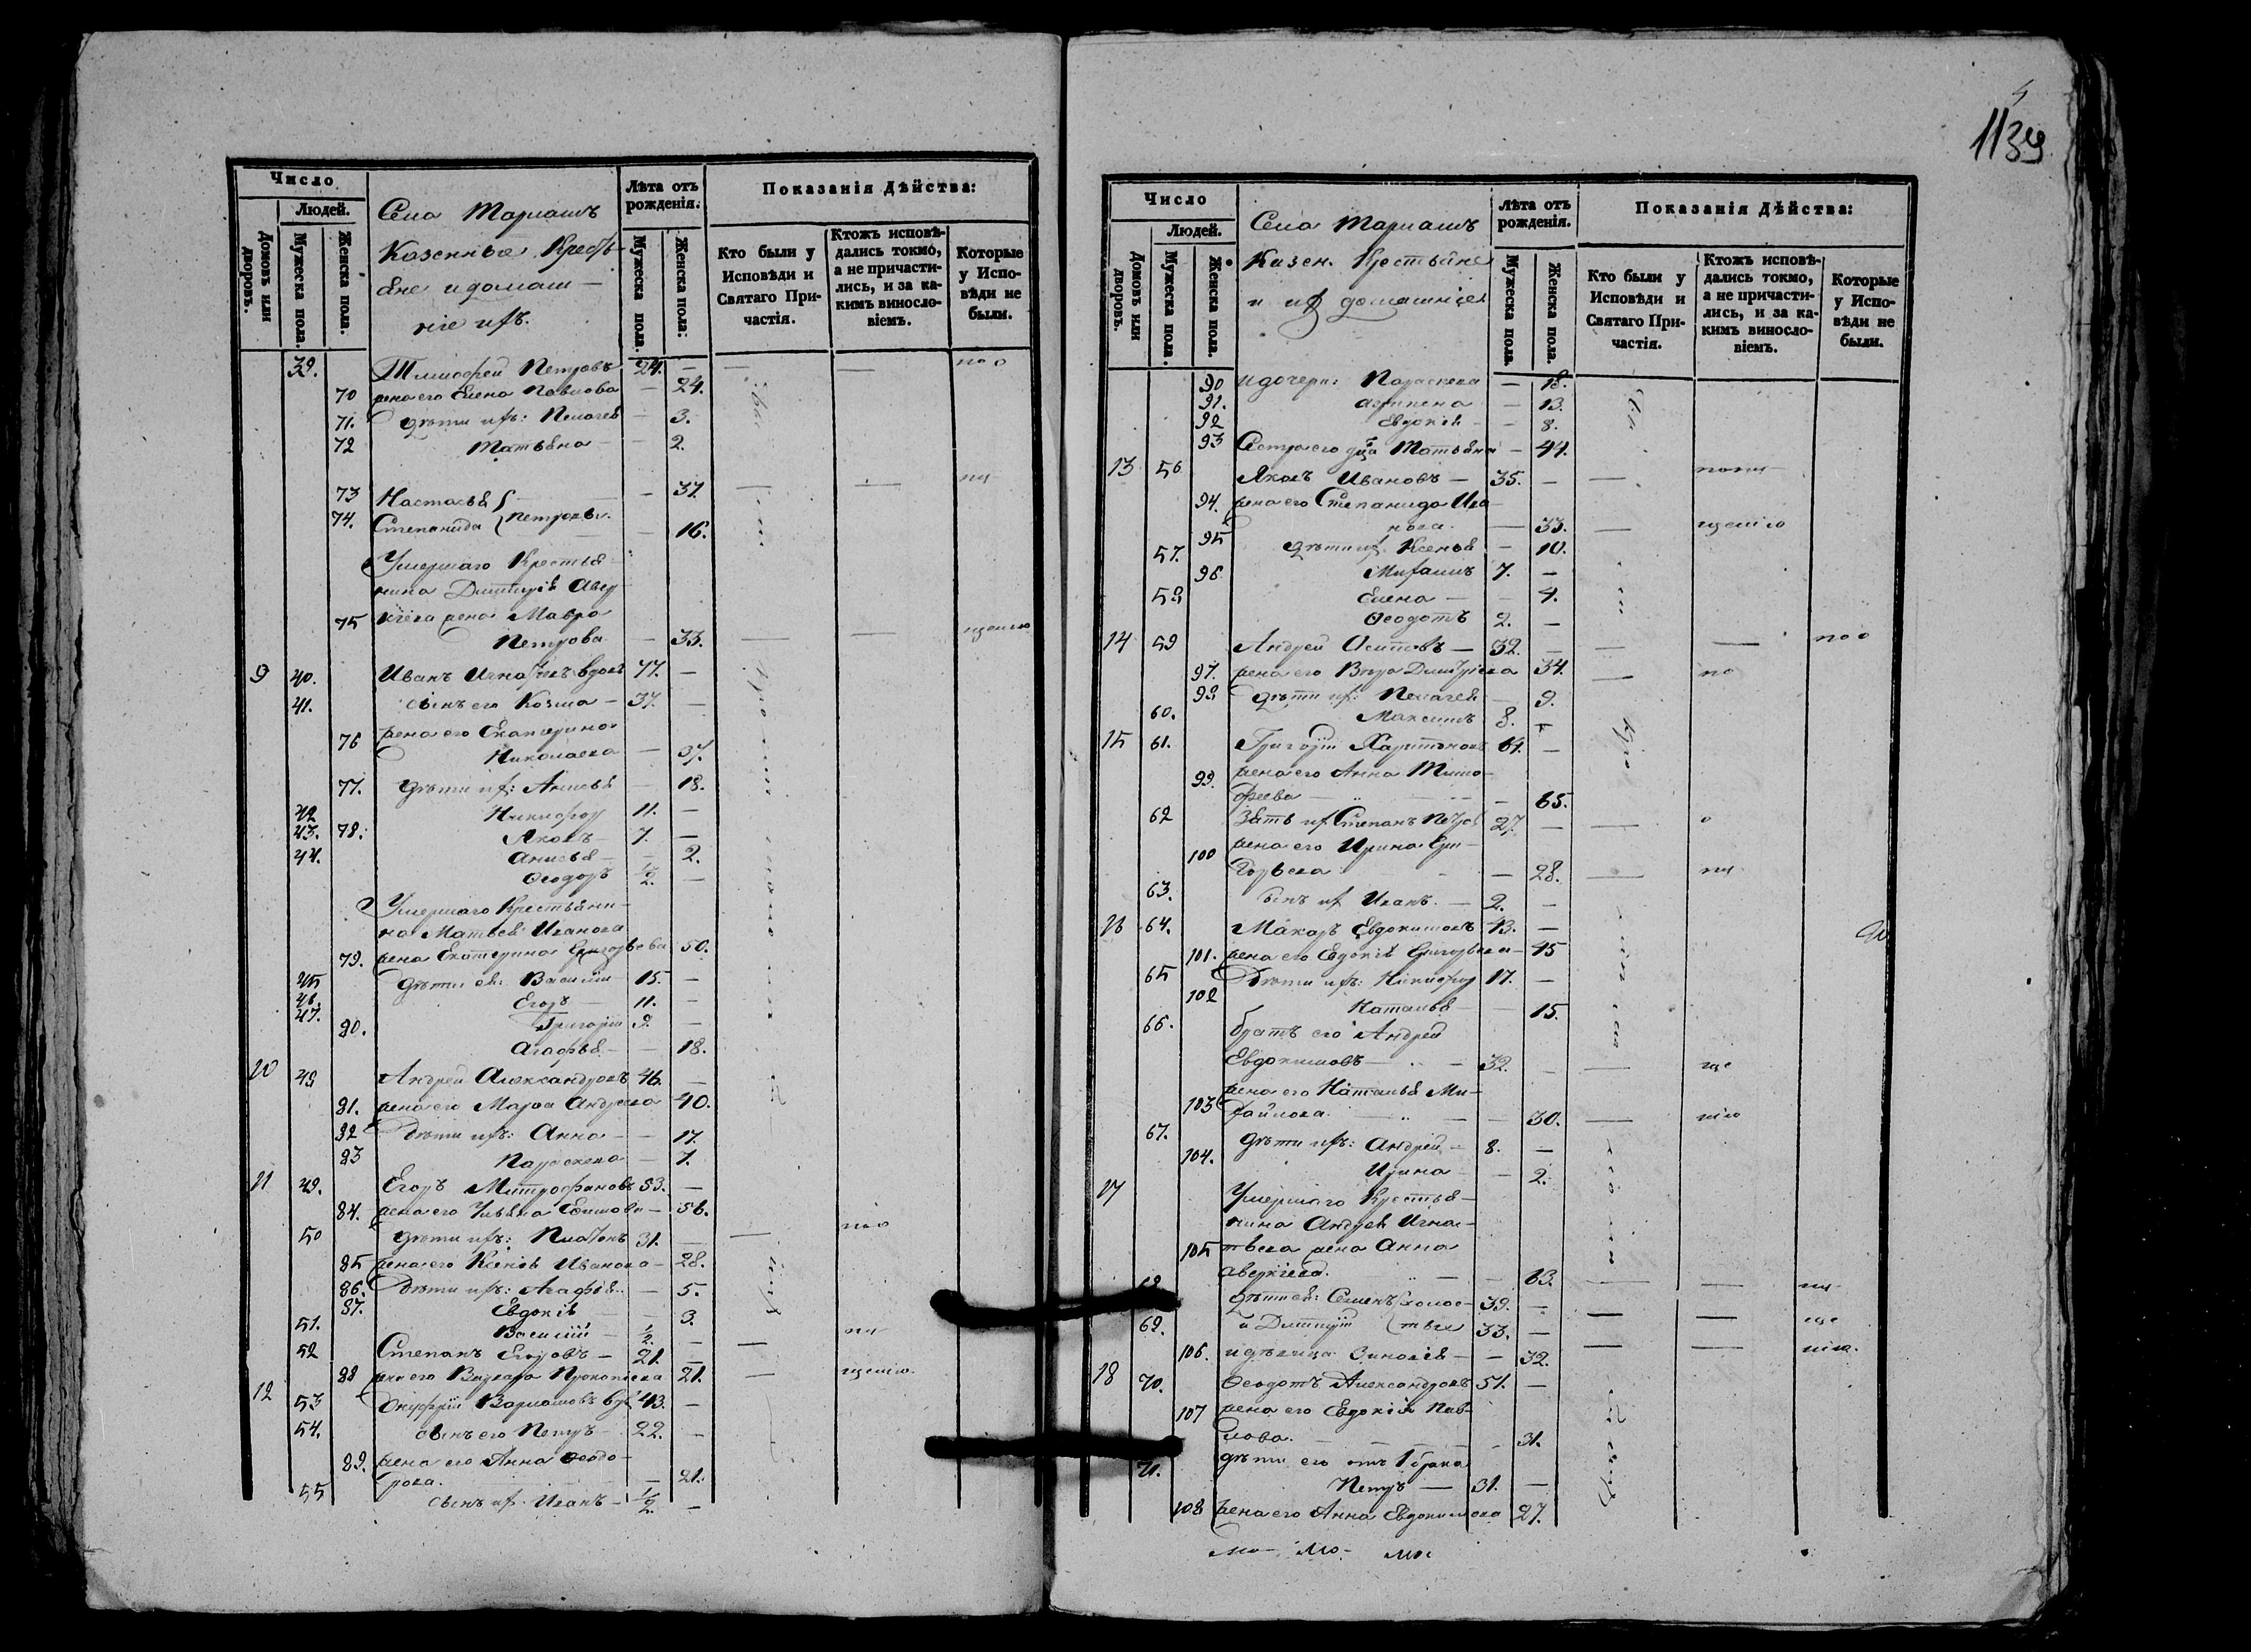 1139
Число
Людей.
Домовъ или дворовъ.
Мужеска пола.
Женска пола.
Села Тармашъ
Казенные Кресть-
яне и домаш-
ніе ихъ.
Лѣта отъ рожденія.
Мужеска пола.
Женска пола:
Показанія Дѣйства:
Кто были у Исповѣди и Святаго Причастія.
Ктожъ исповѣдались токмо, а не причастились, и за какимъ винословіемъ.
Которые у Исповѣди не были.
39. Тимофей Петровъ 24. —
70 жена его Елена Павлова — 24.
71. дѣти ихъ: Пелагея — 3.
72 Татьяна — 2.
73 Настасья — 37.
74. Степанида Петровы. — 16.
Умершаго Крестья-
нина Димитрія Авер-
75 кіева жена Мавра
Петрова — 33.
9 40. Иванъ Игнатьевъ вдовъ 77. —
41. сынъ его Козма — 37. —
76 жена его Екатерина
Николаева — 37.
77. дѣти их: Анисья — 18.
42 Никифор 11. —
43. 78. Яковъ 7. —
44. Анисья — 2.
Ѳеодоръ 1/2. —
Умершаго Крестьяни-
на Матвея Иванова
79. жена Екатерина Григорьева 50.
45 дѣти ея: Василій 15. —
46. Егоръ 11. —
47. Григорій 9. —
80. Агафья — 18.
10 48 Андрей Александровъ 46. —
81. жена его Марѳа Андреева 40.
82 Дѣти ихъ: Анна — 17.
83 Параскева — 7.
11 49. Егоръ Митрофановъ 53. —
84. жена его Ульяна Ефимова — 56.
50 дѣти ихъ: Платонъ 31. —
85 жена его Ксенія Иванова — 28.
86. Дѣти ихъ: Агафья — 5.
87. Евдокія — 3.
51. Василій 1/2. —
52 Степанъ Егоровъ — 21. —
88 жена его Варвара Прокопіева 21.
12 53 Онуфрій Варламовъ вд. 43. —
54. сынъ его Петръ 22. —
89. жена его Анна Ѳеодо-
рова. — 21.
55 сынъ их Иванъ 1/2. —
Число
Людей.
Домовъ или дворовъ.
Мужеска пола.
Женска пола.
Села Тармашъ
Казен. Крестьяне
и их домашніе
Лѣта отъ рожденія.
Мужеска пола.
Женска пола.
Показанія Дѣйства:
Кто были у Исповѣди и Святаго Причастія.
Ктожъ исповѣдались токмо, а не причастились, и за какимъ винословіемъ.
Которые у Исповѣди не были.
90 и дочери: Параскева — 18.
91. Агрипена — 13.
92 Евдокія — 8.
93 Сестра его Татьяна — 44.
13 56 Яковъ Ивановъ — 35. —
94. жена его Степанида Ива-
нова. — 33.
95 дѣти их Ксенья — 10.
57. 96 Михаилъ 7. —
58 Елена — 4.
Ѳеодотъ 2. —
14 59 Андрей Осиповъ — 32. —
97. жена его Вѣра Димитріева 34.
98 дѣти их: Пелагея — 9.
60. Максимъ 8. —
15 61. Григорій Харитоновъ 64. —
99. жена его Анна Тимо-
феева — 65.
62 Зять их Степанъ Петров 27. —
100 жена его Ирина Гри-
горьева — 28.
63. сынъ их Иванъ — 2. —
16 64. Макаръ Евдокимовъ 43. —
101. жена его Евдокія Григорьева — 45
65 Дѣти ихъ: Никифор 17. —
102 Наталья — 15.
66. братъ его Андрей
Евдокимовъ — 32. —
жена его Наталья Ми-
103 хайлова. — 30.
67. дѣти ихъ: Андрей 8. —
104. Ирина — 2.
17 Умершаго Крестья-
нина Андрея Игна-
105 тьева жена Анна
Аверкіева. — 63.
68 дѣти ея: Семенъ холос- 39. —
69. и Димитрій тые 33. —
106. и дѣвица Зиновія — 32.
18 70. Ѳеодотъ Александровъ 51. —
107 жена его Евдокія Пав-
лова. — 31.
дѣти его отъ 1 брака
71. Петръ — 31. —
108 жена его Анна Евдокимова 27.